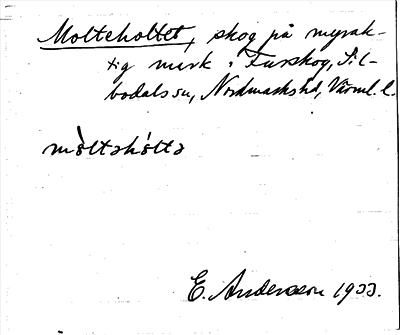 Molteholtet, skog på myrak-
tig mark i Turskog, Sil-
bodals sn, Nordmarks hd, Värml. l.
mòltəhóltə
E. Andersson 1933.